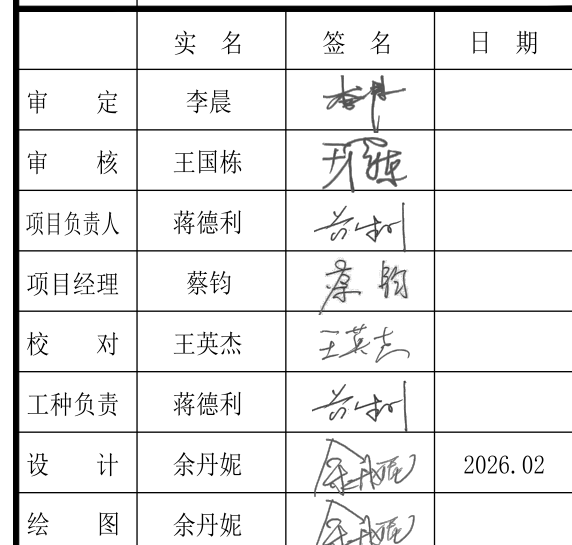 实 名 签 名 日 期
审 定 李晨 李晨
审 核 王国栋 王国栋
项目负责人 蒋德利
项目经理 蔡钧 蔡钧
校 对 王英杰 王英杰
工种负责 蒋德利
设 计 余丹妮 余丹妮 2026.02
绘 图 余丹妮 余丹妮